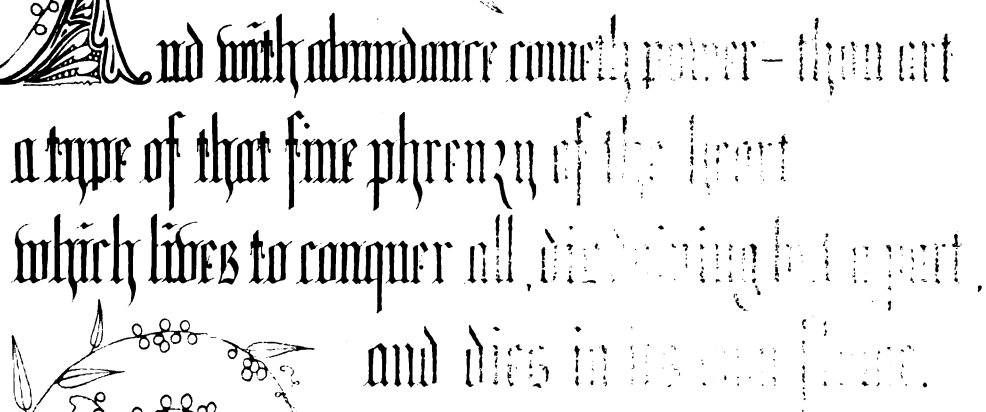 And with abundance cometh power – thou art
a type of that fine phrenzy of the heart
which lives to conquer all, disdaining but a part,
and dies in its own